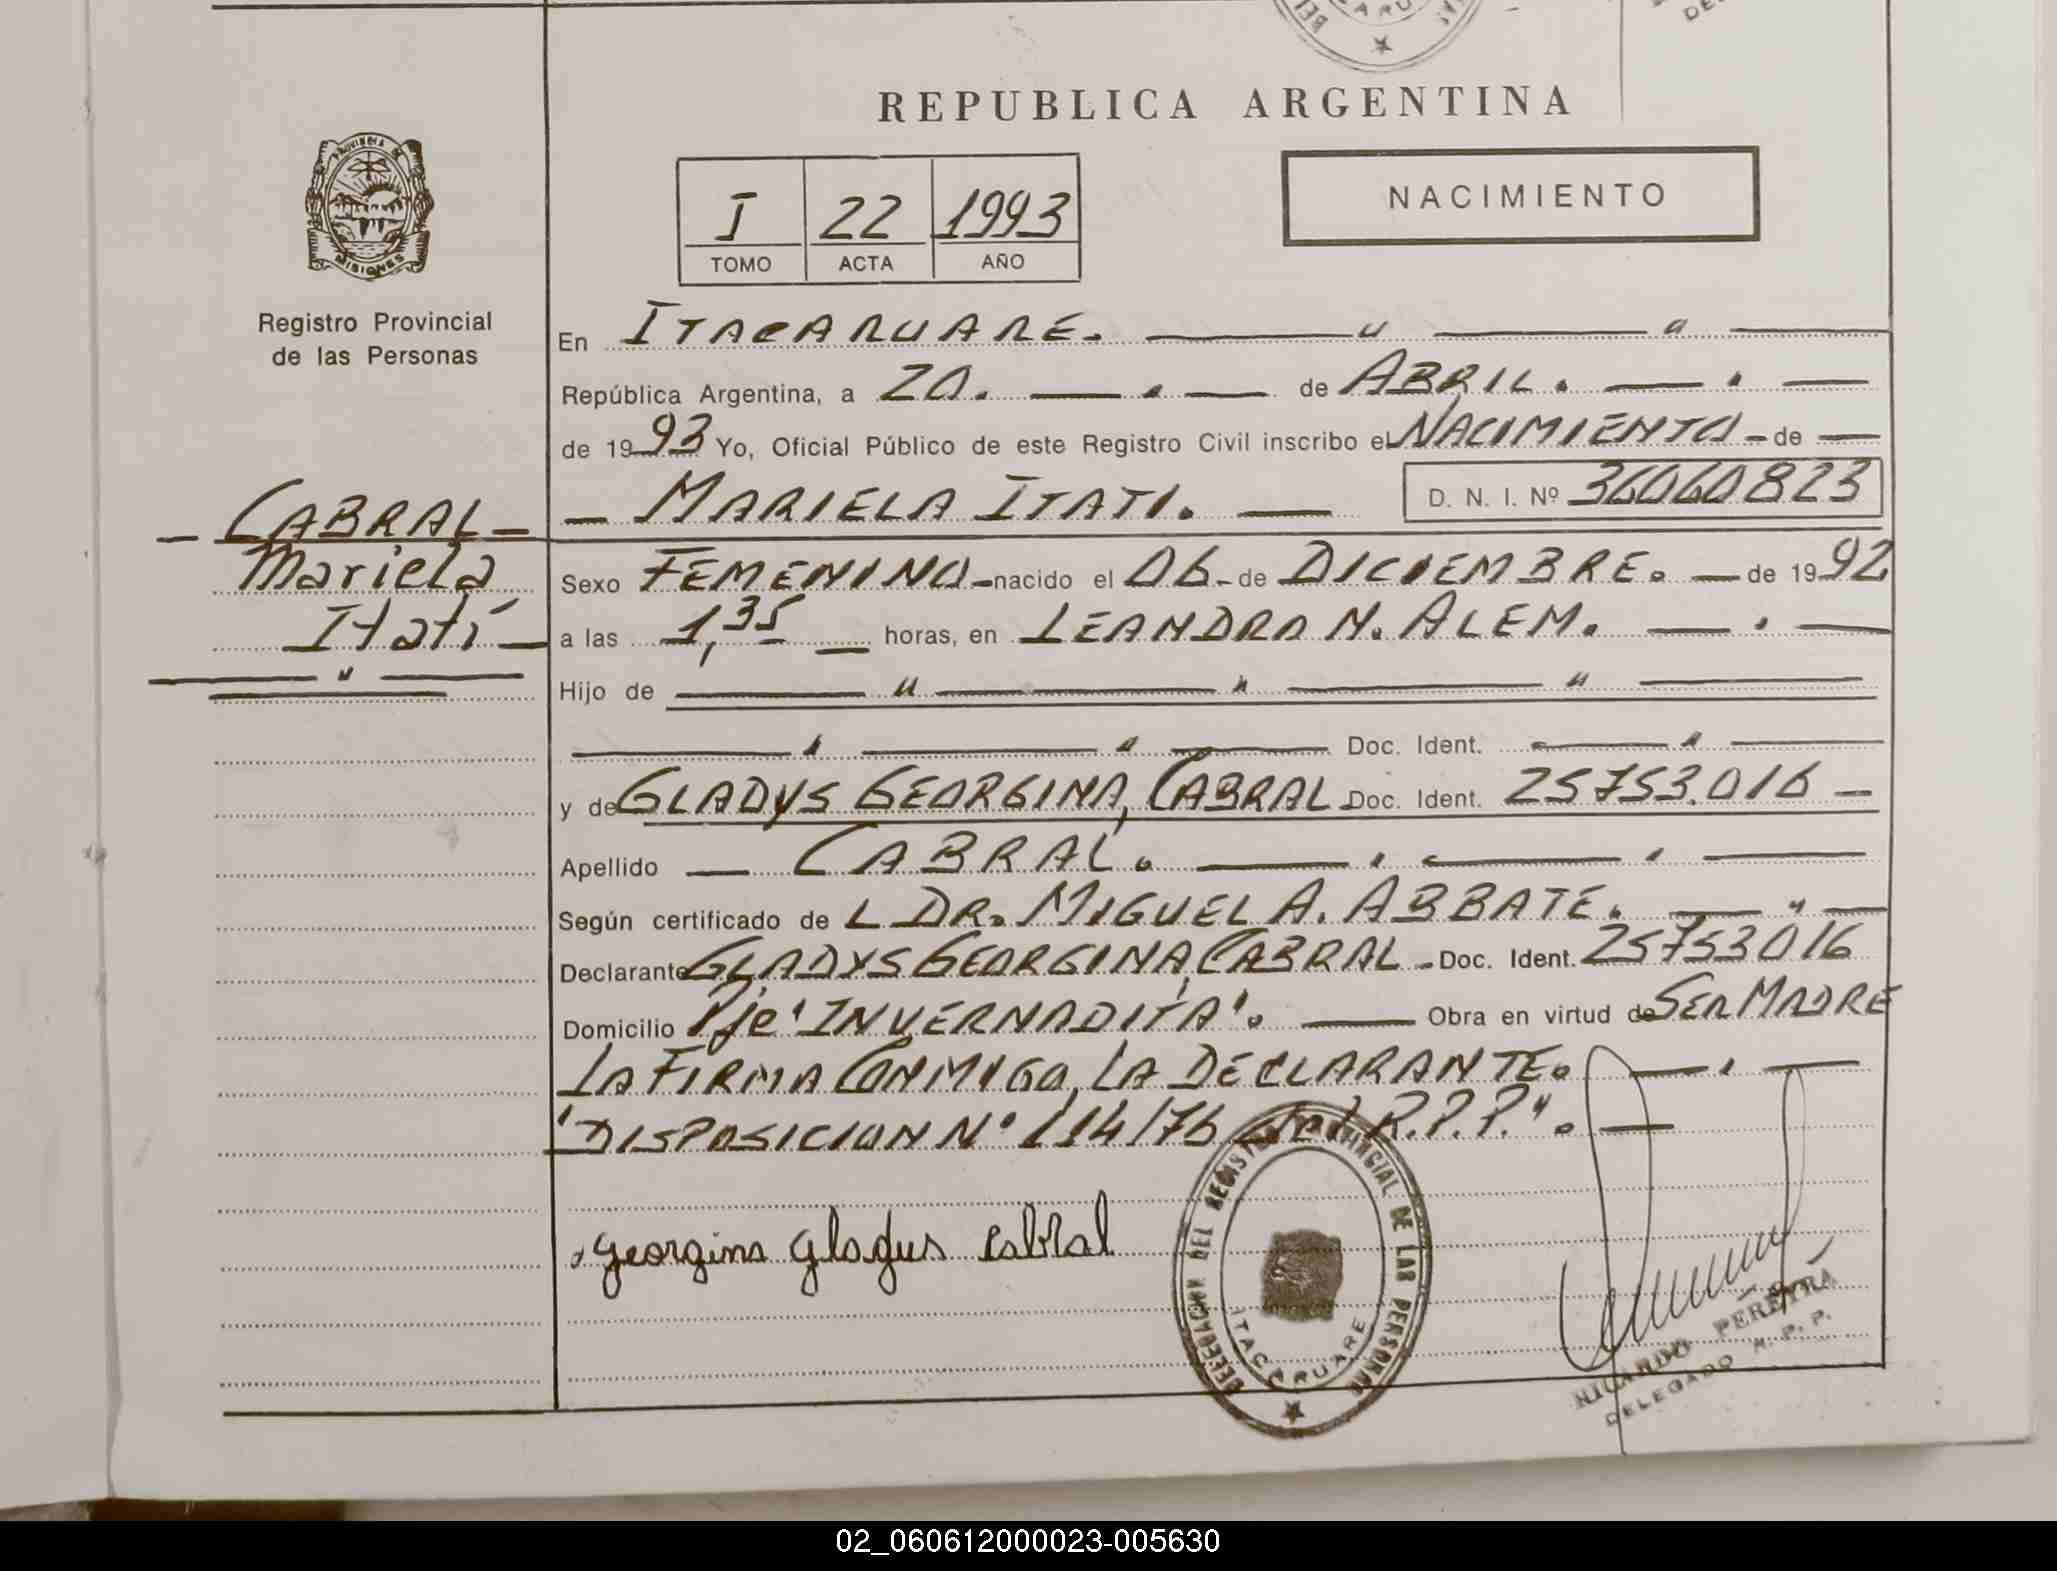 REPUBLICA ARGENTINA
PROVINCIA DE MISIONES
Registro Provincial
de las Personas
I 22 1993
TOMO ACTA AÑO
NACIMIENTO
En ITACARUARE.
República Argentina, a 20. de ABRIL.
de 1993 Yo, Oficial Público de este Registro Civil inscribo el NACIMIENTO - de
MARIELA ITATI. D. N. I. Nº 36060823
- CABRAL -
Mariela
Itatí -
Sexo FEMENINO - nacido el 06 - de DICIEMBRE. de 1992
a las 1,35 horas, en LEANDRO N. ALEM.
Hijo de
Doc. Ident.
y de GLADYS GEORGINA, CABRAL Doc. Ident. 25753.016 -
Apellido CABRAL.
Según certificado de L DR. MIGUEL A. ABBATE.
Declarante GLADYS GEORGINA, CABRAL - Doc. Ident. 25753016
Domicilio Pje "INVERNADITA". Obra en virtud de SER MADRE
LA FIRMA CONMIGO, LA DECLARANTE.
"DISPOSICION Nº 114/76 R.P.P.".
Georgina Gladys Cabral
DELEGACION DEL REGISTRO PROVINCIAL DE LAS PERSONAS
ITACARUARE
RICARDO PEREYRA
DELEGADO R. P. P.
02_060612000023-005630